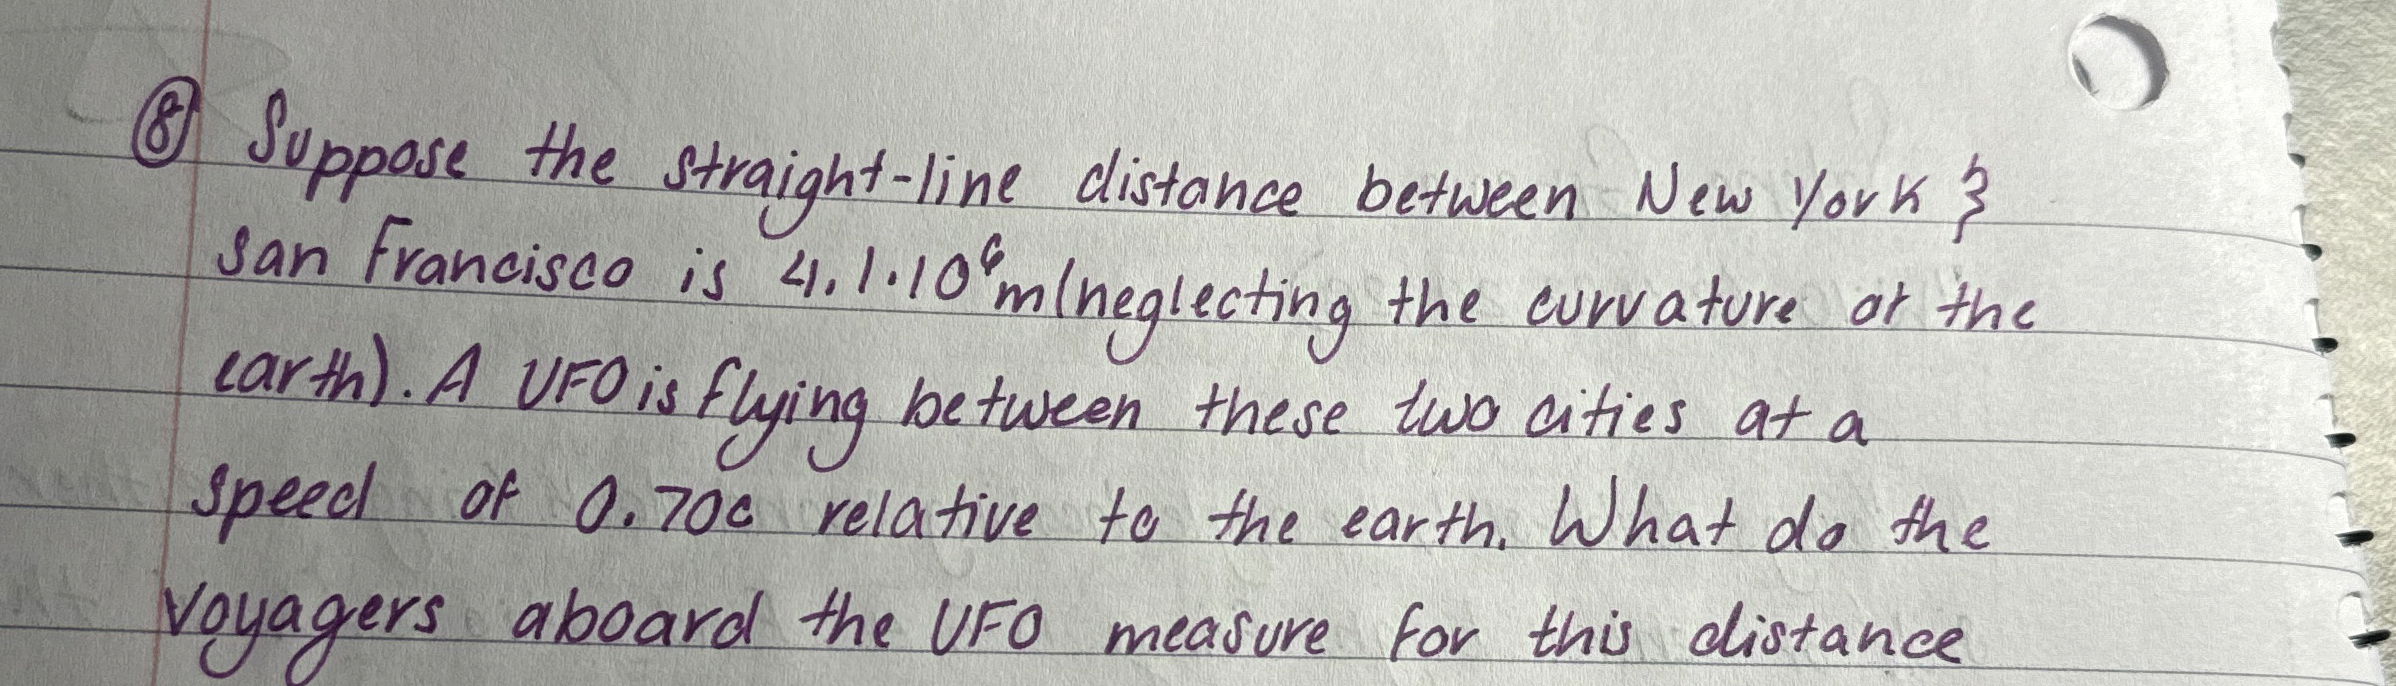 ⑧ Suppose the straight-line distance between New York &
San Francisco is 4.1·10⁶m(neglecting the curvature of the
earth). A UFO is flying between these two cities at a
speed of 0.70c relative to the earth. What do the
voyagers aboard the UFO measure for this distance